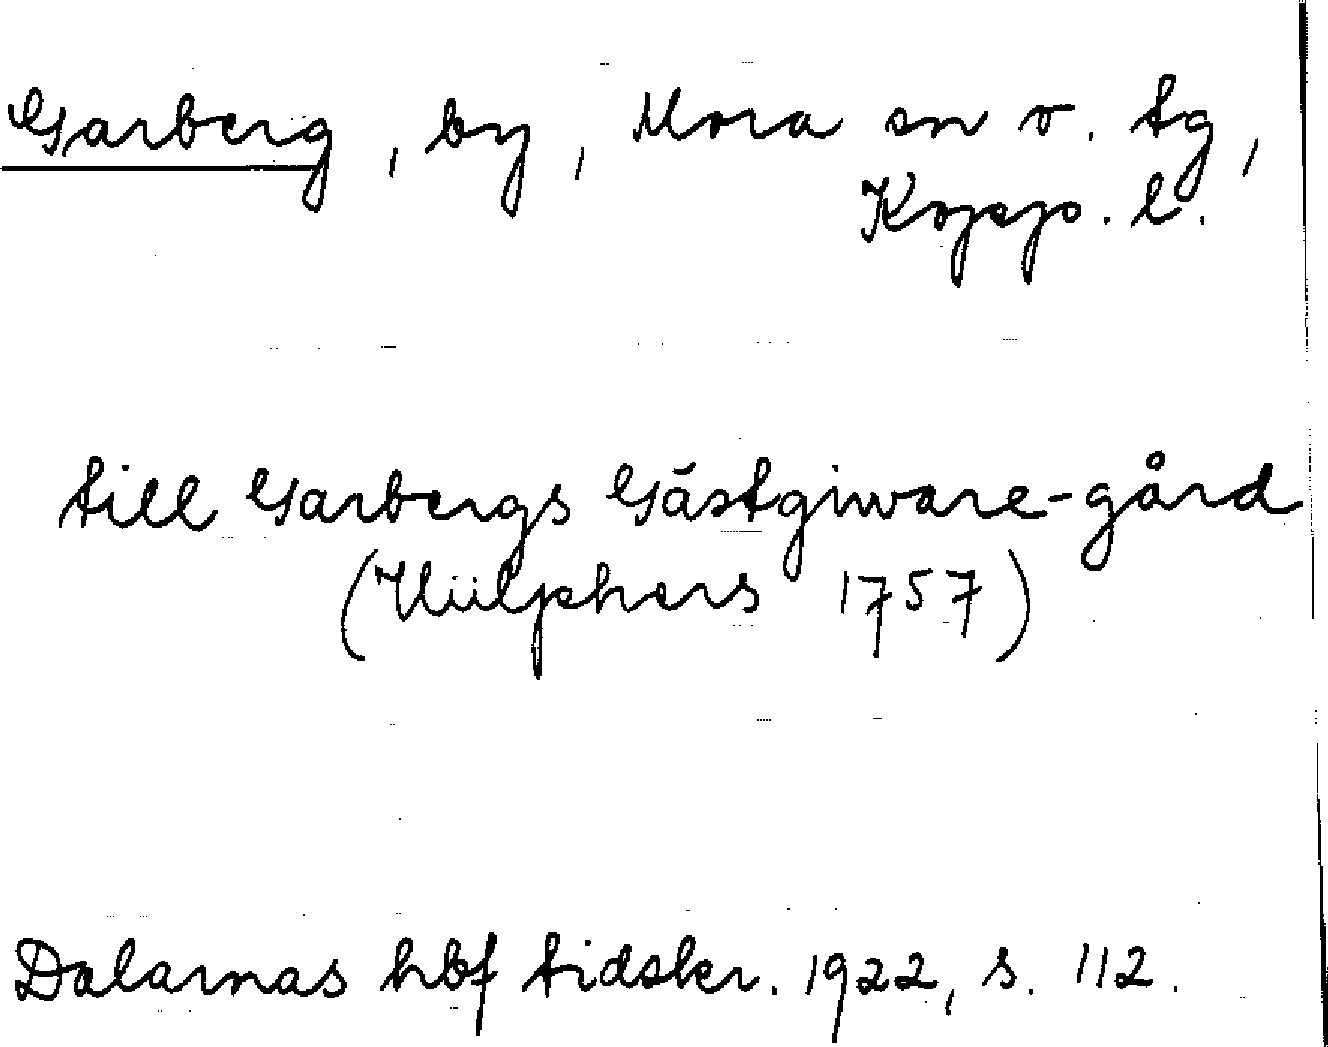 Garberg, by, Mora sn o. tg,
Kopp. l.
till Garbergs Gästgiware-gård
(Hülphers 1757)
Dalarnas hbf tidskr. 1922, s. 112.